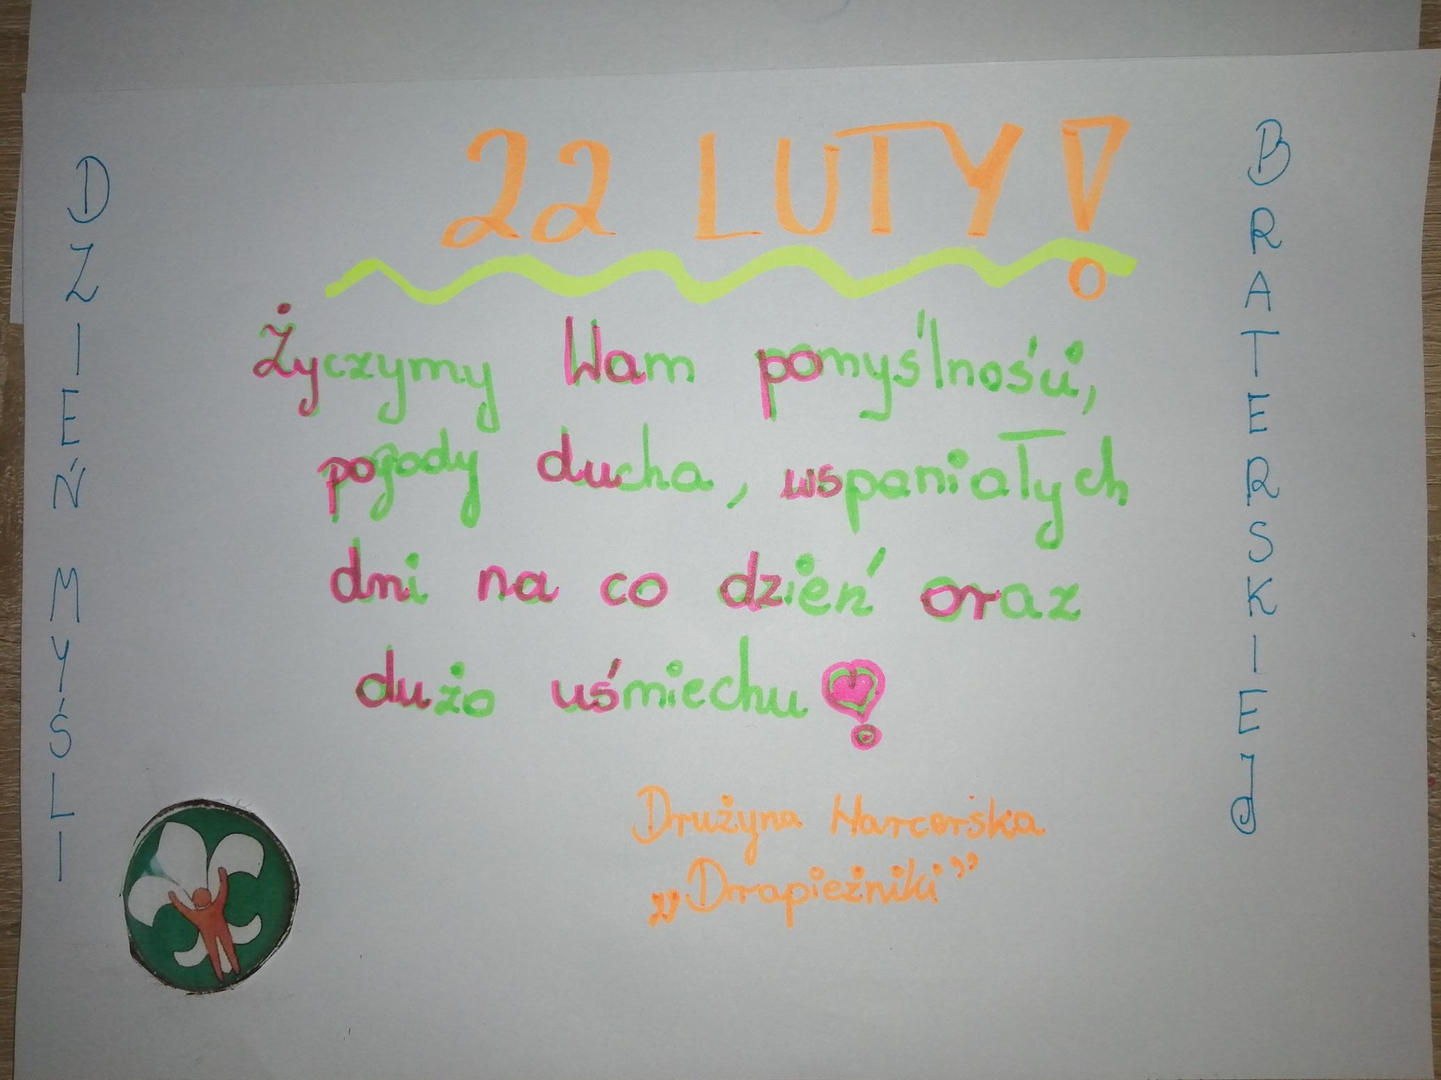 22 LUTY!
Życzymy Wam pomyślności,
pogody ducha, wspaniałych
dni na co dzień oraz
dużo uśmiechu!
Drużyna Harcerska
„Drapieżniki”
DZIEŃ MYŚLI
BRATERSKIEJ